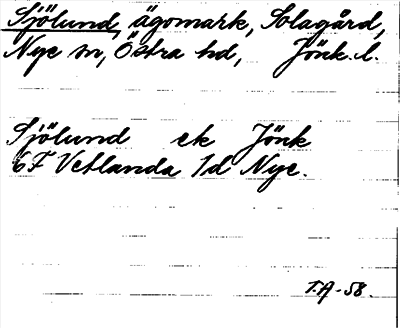 Sjölund, ägomark, Solagård,
Nye sn, Östra hd, Jönk. l.
Sjölund ek Jönk
6F Vetlanda 1d Nye.
T.A -58.